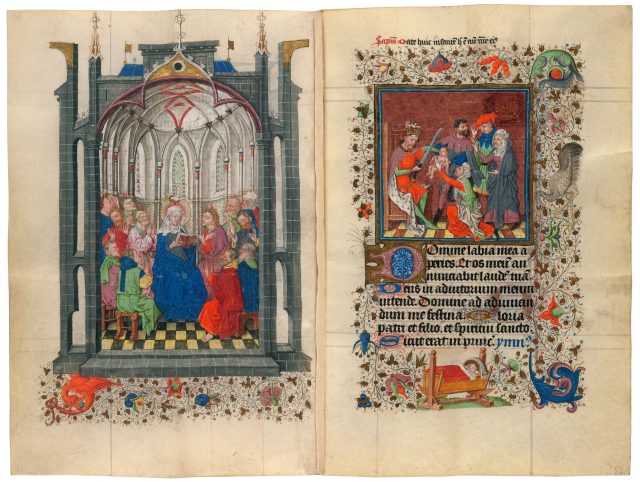 Date huic infantē h ē
Domine labia mea a
peries. Et os meū an
nunciabit laudē tuā
Deus in adiutorium meum
intende. Domine ad adiuuan
dum me festina. Gloria
patri et filio. et spiritui sancto.
Sicut erat in princ. ymn